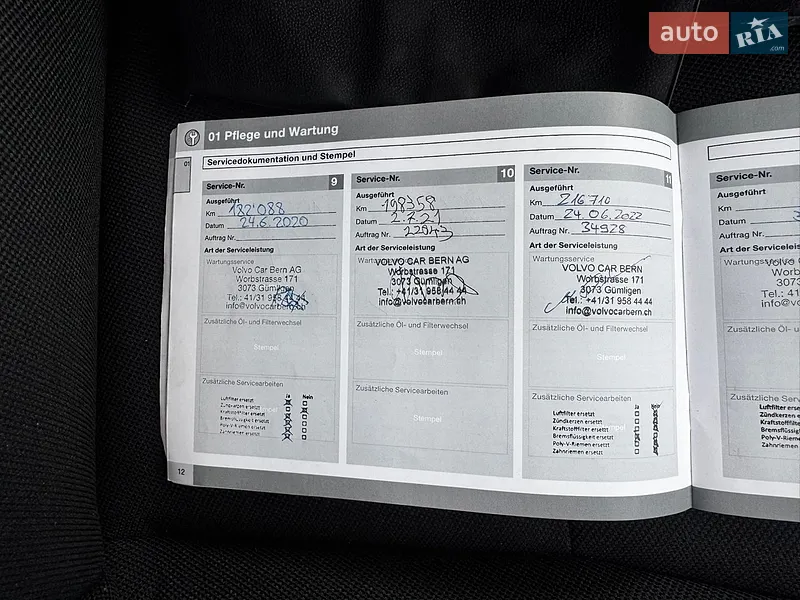 auto RIA .com
01 Pflege und Wartung
01
Servicedokumentation und Stempel
Service-Nr. 9
Ausgeführt
Km 182'088
Datum 24.6.2020
Auftrag Nr.
Art der Serviceleistung
Wartungsservice
Volvo Car Bern AG
Worbstrasse 171
3073 Gümligen
Tel.: +41/31 958 44 44
info@volvocarbern.ch
Zusätzliche Öl- und Filterwechsel
Stempel
Zusätzliche Servicearbeiten
Ja Nein
Luftfilter ersetzt
Zündkerzen ersetzt
Kraftstofffilter ersetzt
Bremsflüssigkeit ersetzt
Poly-V-Riemen ersetzt
Zahnriemen ersetzt
12
Service-Nr. 10
Ausgeführt
Km 198358
Datum 2.7.21
Auftrag Nr. 22943
Art der Serviceleistung
VOLVO CAR BERN AG
Worbstrasse 171
3073 Gümligen
Tel.: +41/31 958 44 44
info@volvocarbern.ch
Zusätzliche Öl- und Filterwechsel
Stempel
Zusätzliche Servicearbeiten
Stempel
Service-Nr. 11
Ausgeführt
Km 216710
Datum 24.06.2022
Auftrag Nr. 34928
Art der Serviceleistung
Wartungsservice
VOLVO CAR BERN
Worbstrasse 171
3073 Gümligen
Tel.: +41/31 958 44 44
info@volvocarbern.ch
Zusätzliche Öl- und Filterwechsel
Stempel
Zusätzliche Servicearbeiten
Ja Nein
Luftfilter ersetzt
Zündkerzen ersetzt
Kraftstofffilter ersetzt
Bremsflüssigkeit ersetzt
Poly-V-Riemen ersetzt
Zahnriemen ersetzt
Service-Nr.
Ausgeführt
Km
Datum
Auftrag Nr.
Art der Serviceleis
Volvo
Worb
3073
Tel.: +41
info@vo
Zusätzliche Öl- und
Zusätzliche Service
Luftfilter ersetz
Zündkerzen e
Kraftstofffilter
Bremsflüssig
Poly-V-Riem
Zahnriemen